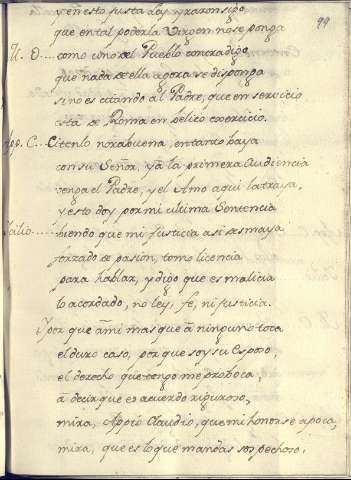 y en esto justa ley y razon sigo,
99
que en tal poder la Virgen no se ponga
N. D.... como uno del Pueblo contradigo
que nada de ella agora se disponga
sino es citando al Padre, que en servicio
está de Roma en belico exercicio.
Apo. C... Citenlo norabuena, entanto baya
con su Señor, y a la primera Audiencia
venga el Padre, y el Amo aqui la trayga,
y esto doy por mi ultima Sentencia
Icilio..... Viendo que mi justicia asi desmaya
forzado de pasión, tomo licencia
para hablar, y digo que es malicia
lo acordado, no ley, fe, ni justicia.
Y por que a mi mas que a ninguno toca
el duro caso, por que soy su Esposo,
el derecho que tengo me proboca,
a decir que es acuerdo riguroso,
mira, Appio Claudio, que mi honor se apoca,
mira, que es lo que mandas sospechoso,